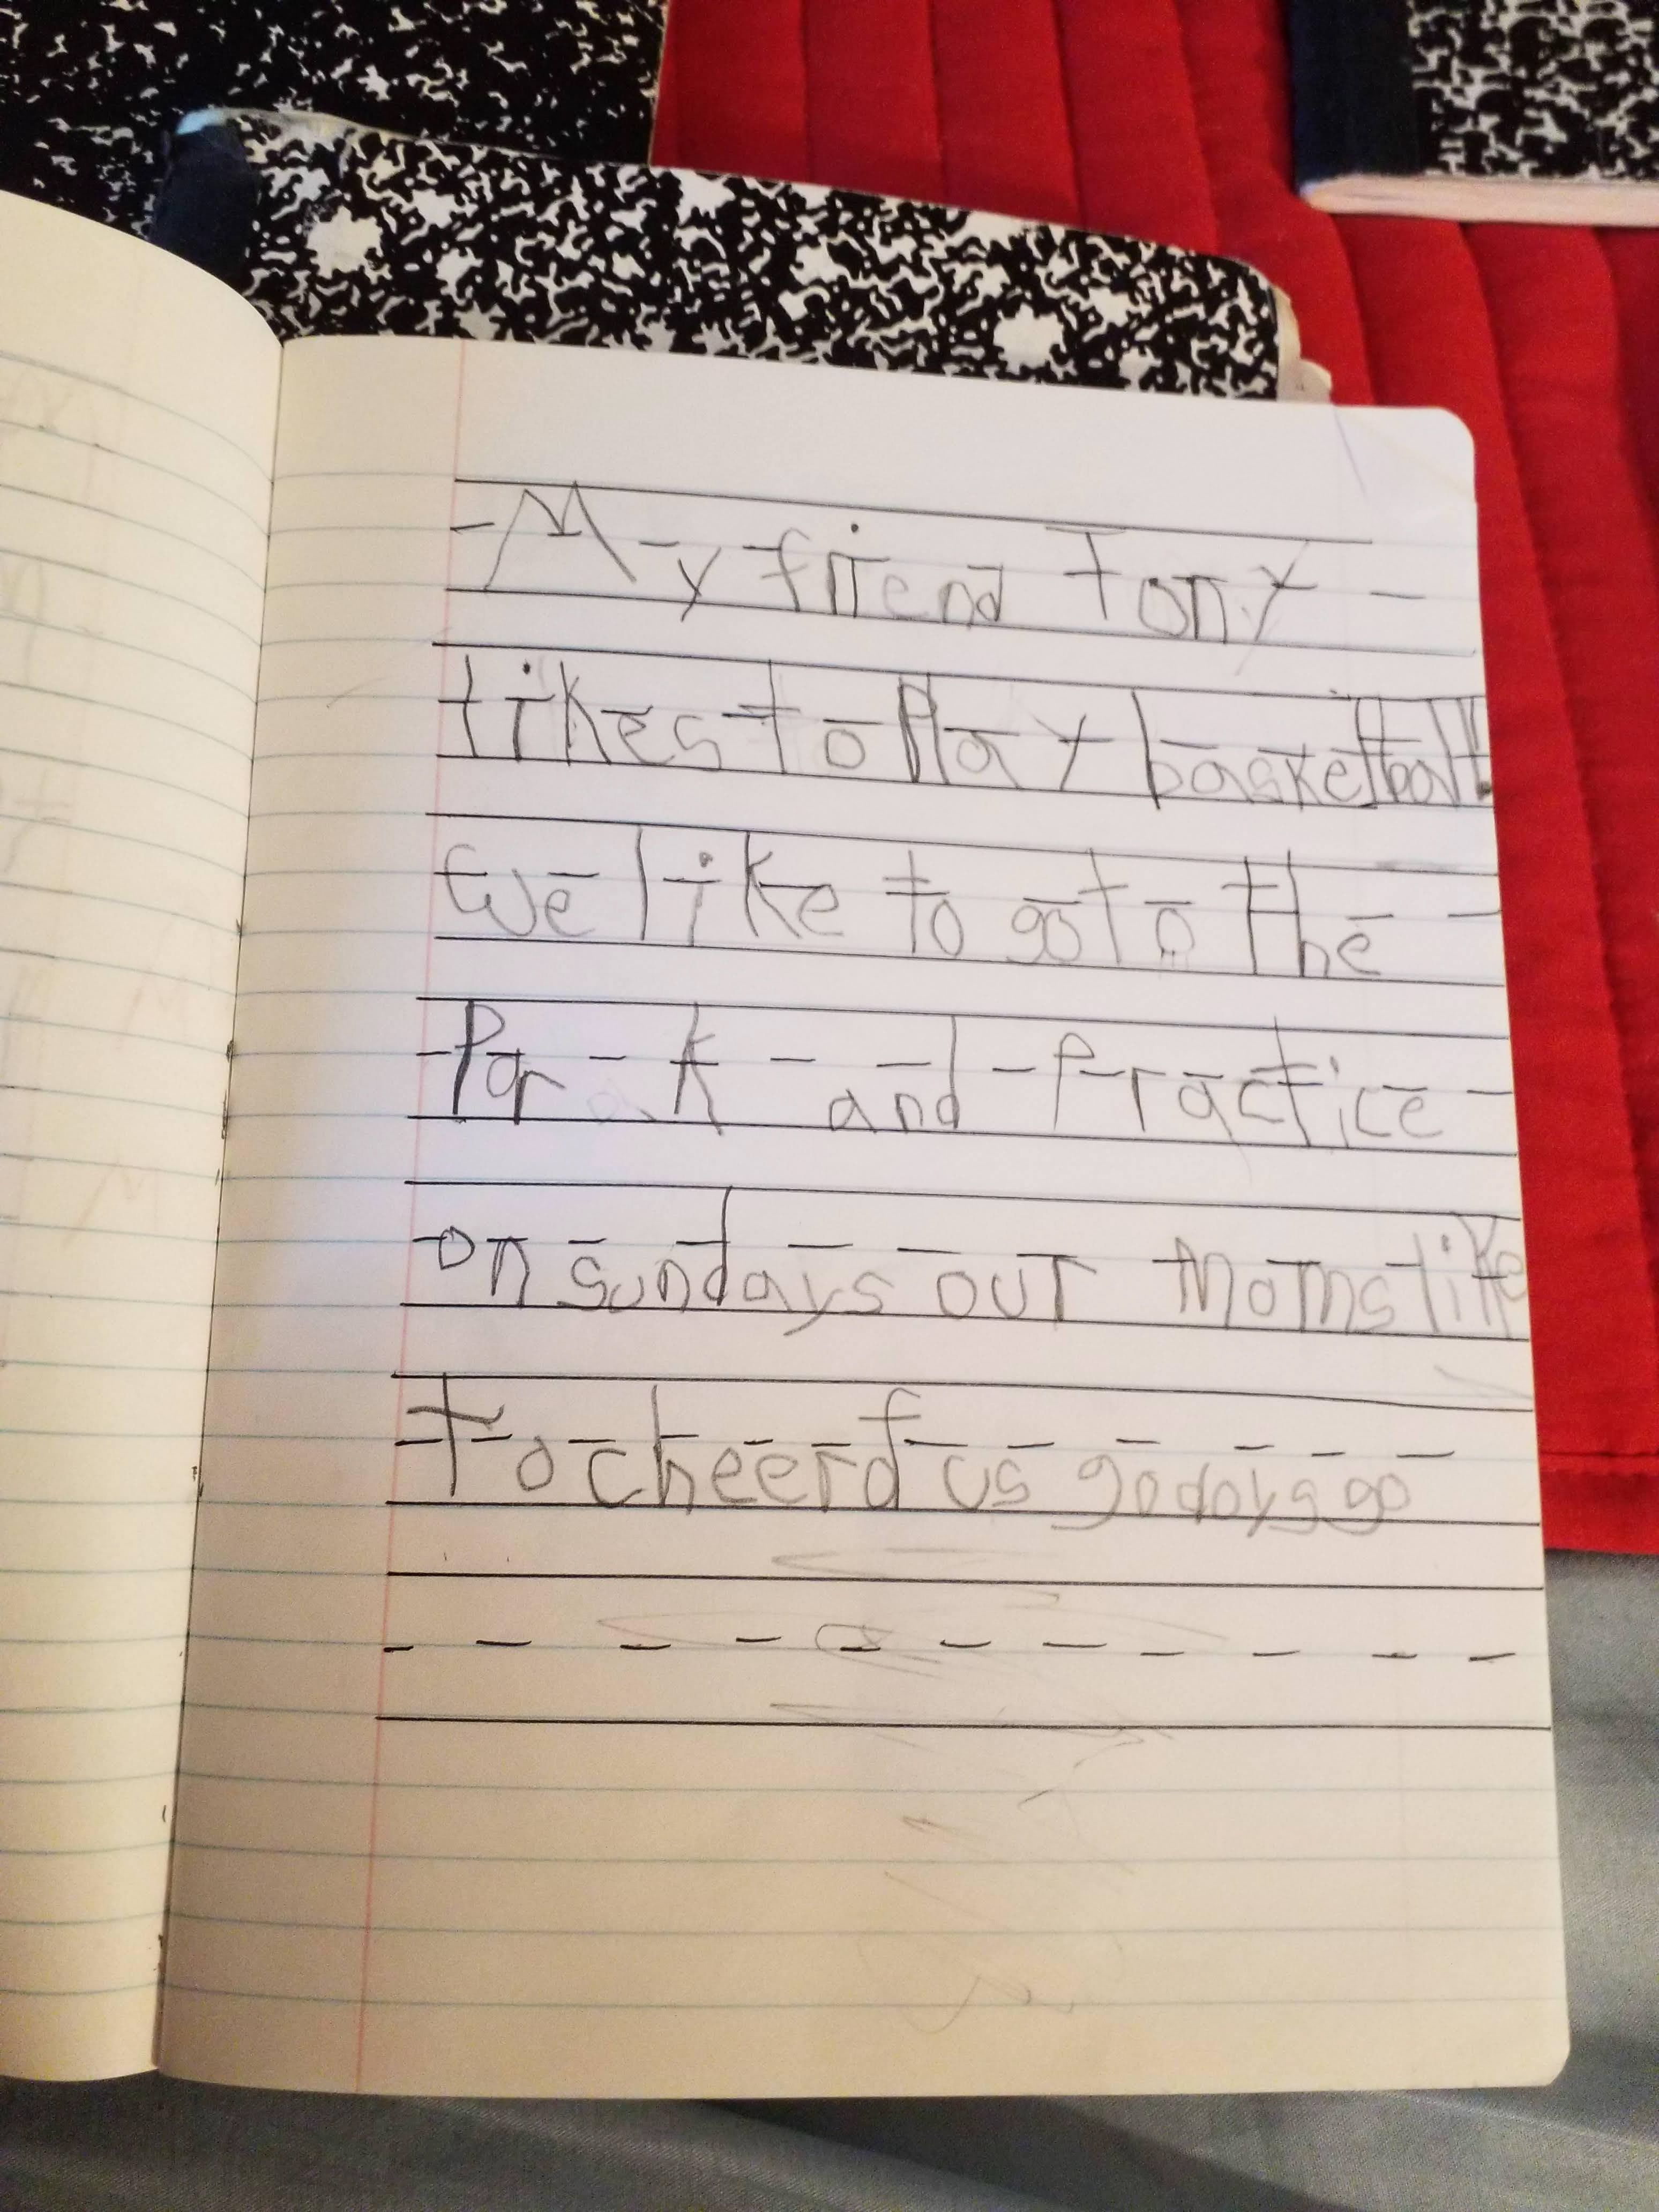 My friend Tony
likes to Play basketball.
we like to go to the
Park and Practice
on sundays our moms like
to cheerd us go doys go